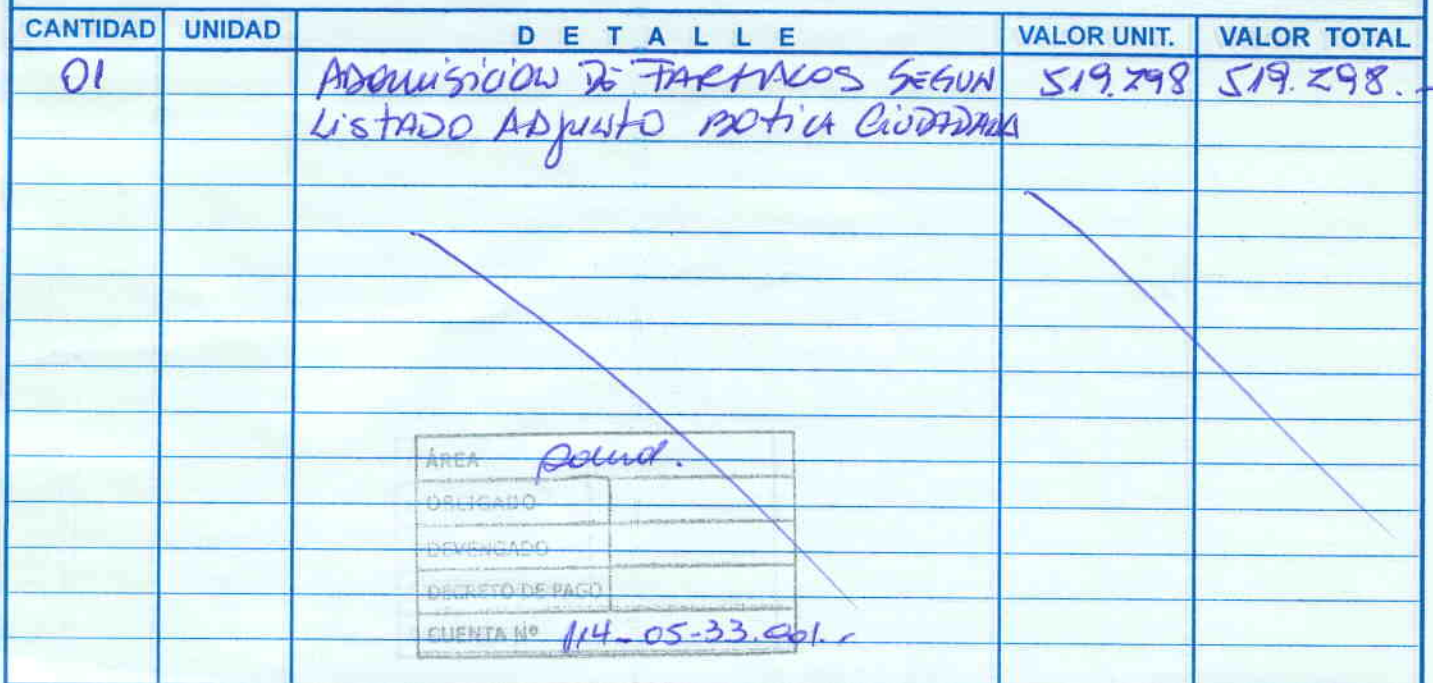 CANTIDAD UNIDAD DETALLE VALOR UNIT. VALOR TOTAL
01 ADQUISICION DE FARMACOS SEGUN 519.298 519.298.-
LISTADO ADJUNTO BOTICA CIUDADANA
ÁREA Salud.
OBLIGADO
DEVENGADO
DECRETO DE PAGO
CUENTA Nº 114-05-33.001.-